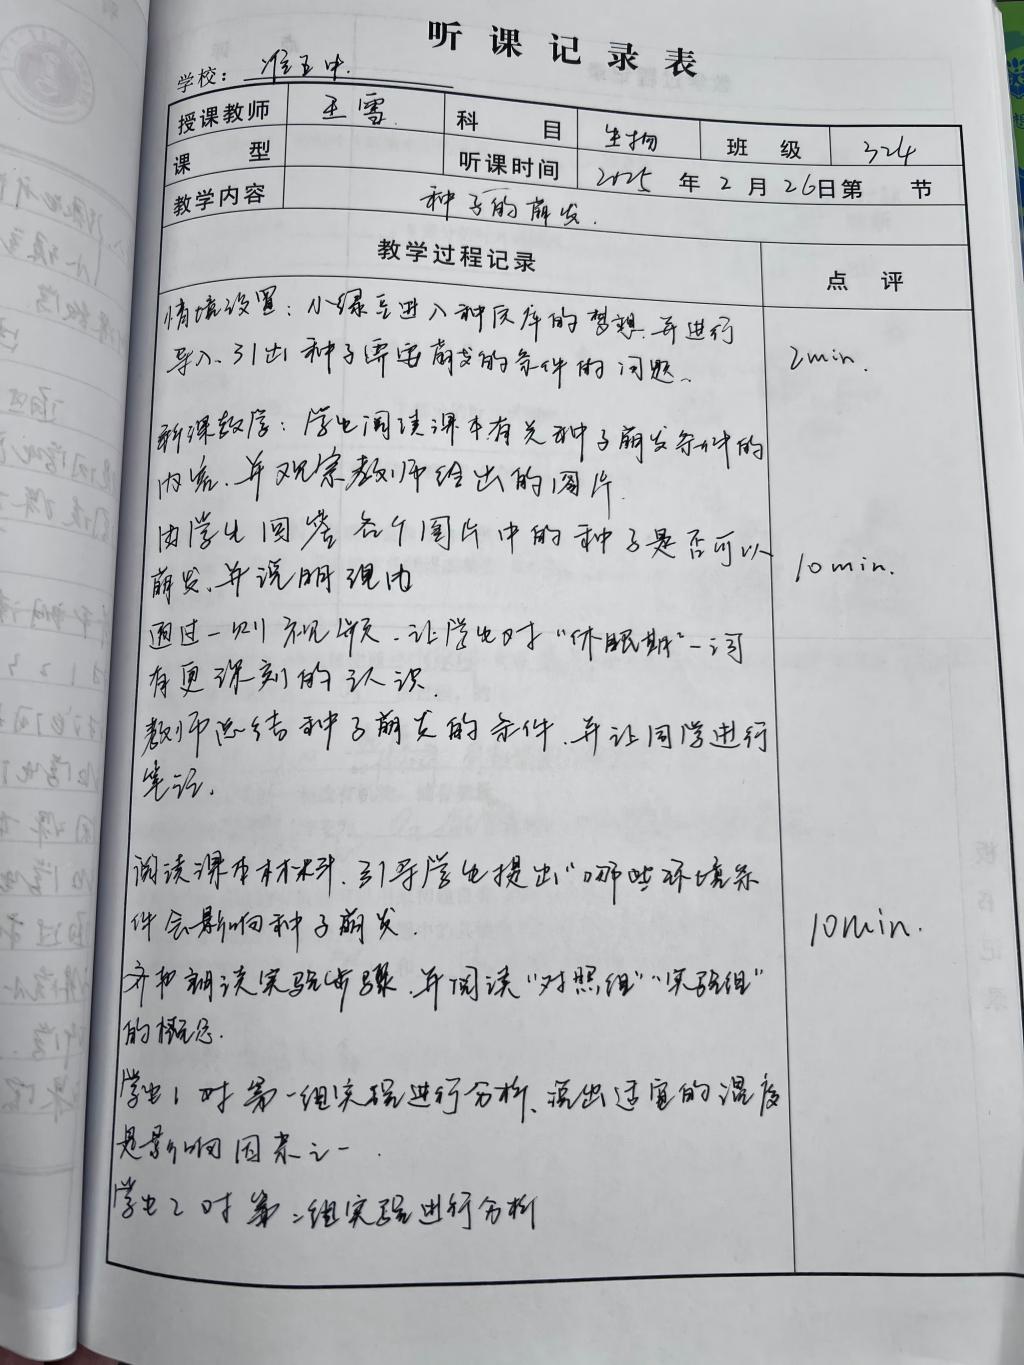 听课记录表
学校：淮五中.
授课教师 王雪. 科目 生物 班级 324
课型 听课时间 2025年2月26日第 节
教学内容 种子的萌发.
教学过程记录 点评
情境设置：小绿豆进入种质库的梦想.并进行
导入、引出种子需要萌发的条件的问题、 2min.
新课教学：学生阅读课本有关种子萌发条件的
内容、并观察教师给出的图片.
由学生回答各个图片中的种子是否可以
萌发、并说明理由 10min.
通过一则视频、让学生对“休眠期”一词
有更深刻的认识.
教师总结种子萌发的条件、并让同学进行
笔记.
阅读课本材料、引导学生提出“哪些环境条
件会影响种子萌发. 10min.
齐和朗读实验步骤、并阅读“对照组”“实验组”
的概念.
学生1对第一组实验进行分析、说出适宜的温度
是影响因素之一.
学生2对第二组实验进行分析